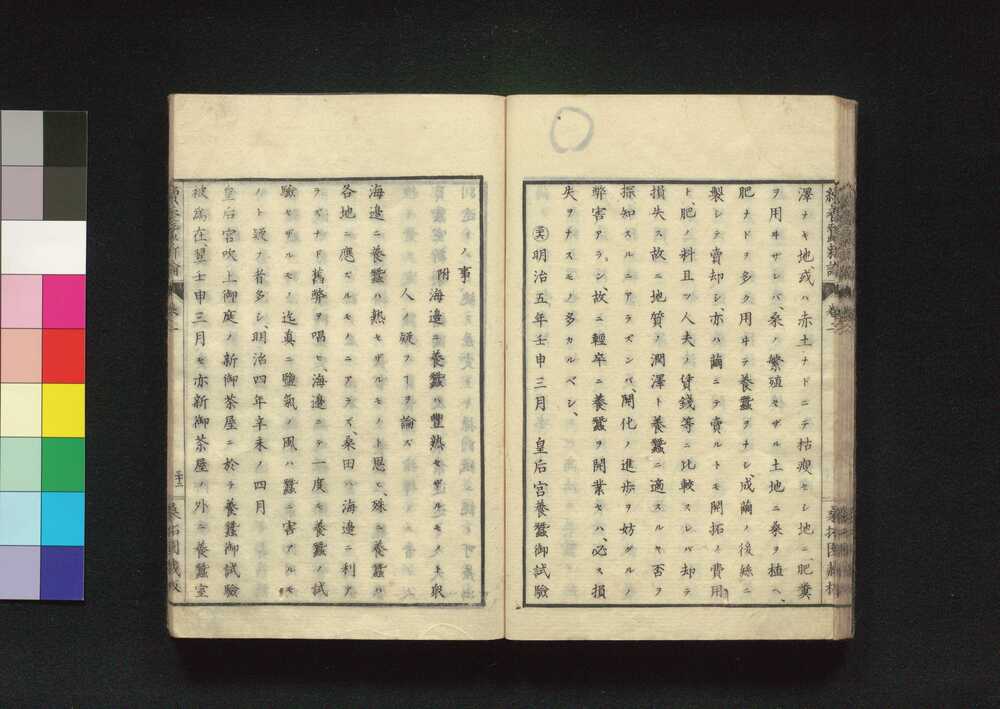 澤ナキ地或ハ赤土ナドニテ枯瘦セシ地ニ肥糞
ヲ用ヰザレバ、桑ノ繁殖セザル土地ニ桑ヲ植ヘ、
肥ナドヲ多ク用ヰテ養蠶ヲナシ、成繭ノ後絲ニ
製シテ賣却シ、亦ハ繭ニテ賣ルトモ開拓ノ費用
ト、肥ノ料且ツ人夫ノ賃錢等ニ比較スレバ却テ
損失ス故ニ地質ノ潤澤ト養蠶ニ適スルヤ否ヲ
探知スルニアラズンバ、開化ノ進歩ヲ妨グルノ
弊害アラン、故ニ輕卒ニ養蠶ヲ開業セハ、必ス損
失ヲナスモノ多カルベシ、
明治五年壬申三月 皇后宮養蠶御試驗
事
附 海邊ニ養蠶ハ豐熟セザルモノト取
人ノ疑フヿヲ論ズ
海邊ニ養蠶ハ熟セザルモノト思ヒ、殊ニ養蠶ハ
各地ニ應ゼルモノニアラズ、桑田ハ海邊ニ利ア
ラズナド舊弊ヲ唱ヒ、海邊ニテ一度モ養蠶ノ試
驗セザルモノ迄眞ニ鹽氣ノ風ハ蠶ニ害アルモ
ノト疑フ者多シ、明治四年辛未ノ四月
皇后宮吹上御庭ノ新御茶屋ニ於テ養蠶御試驗
被爲在、翌壬申三月モ亦新御茶屋ノ外ニ養蠶室